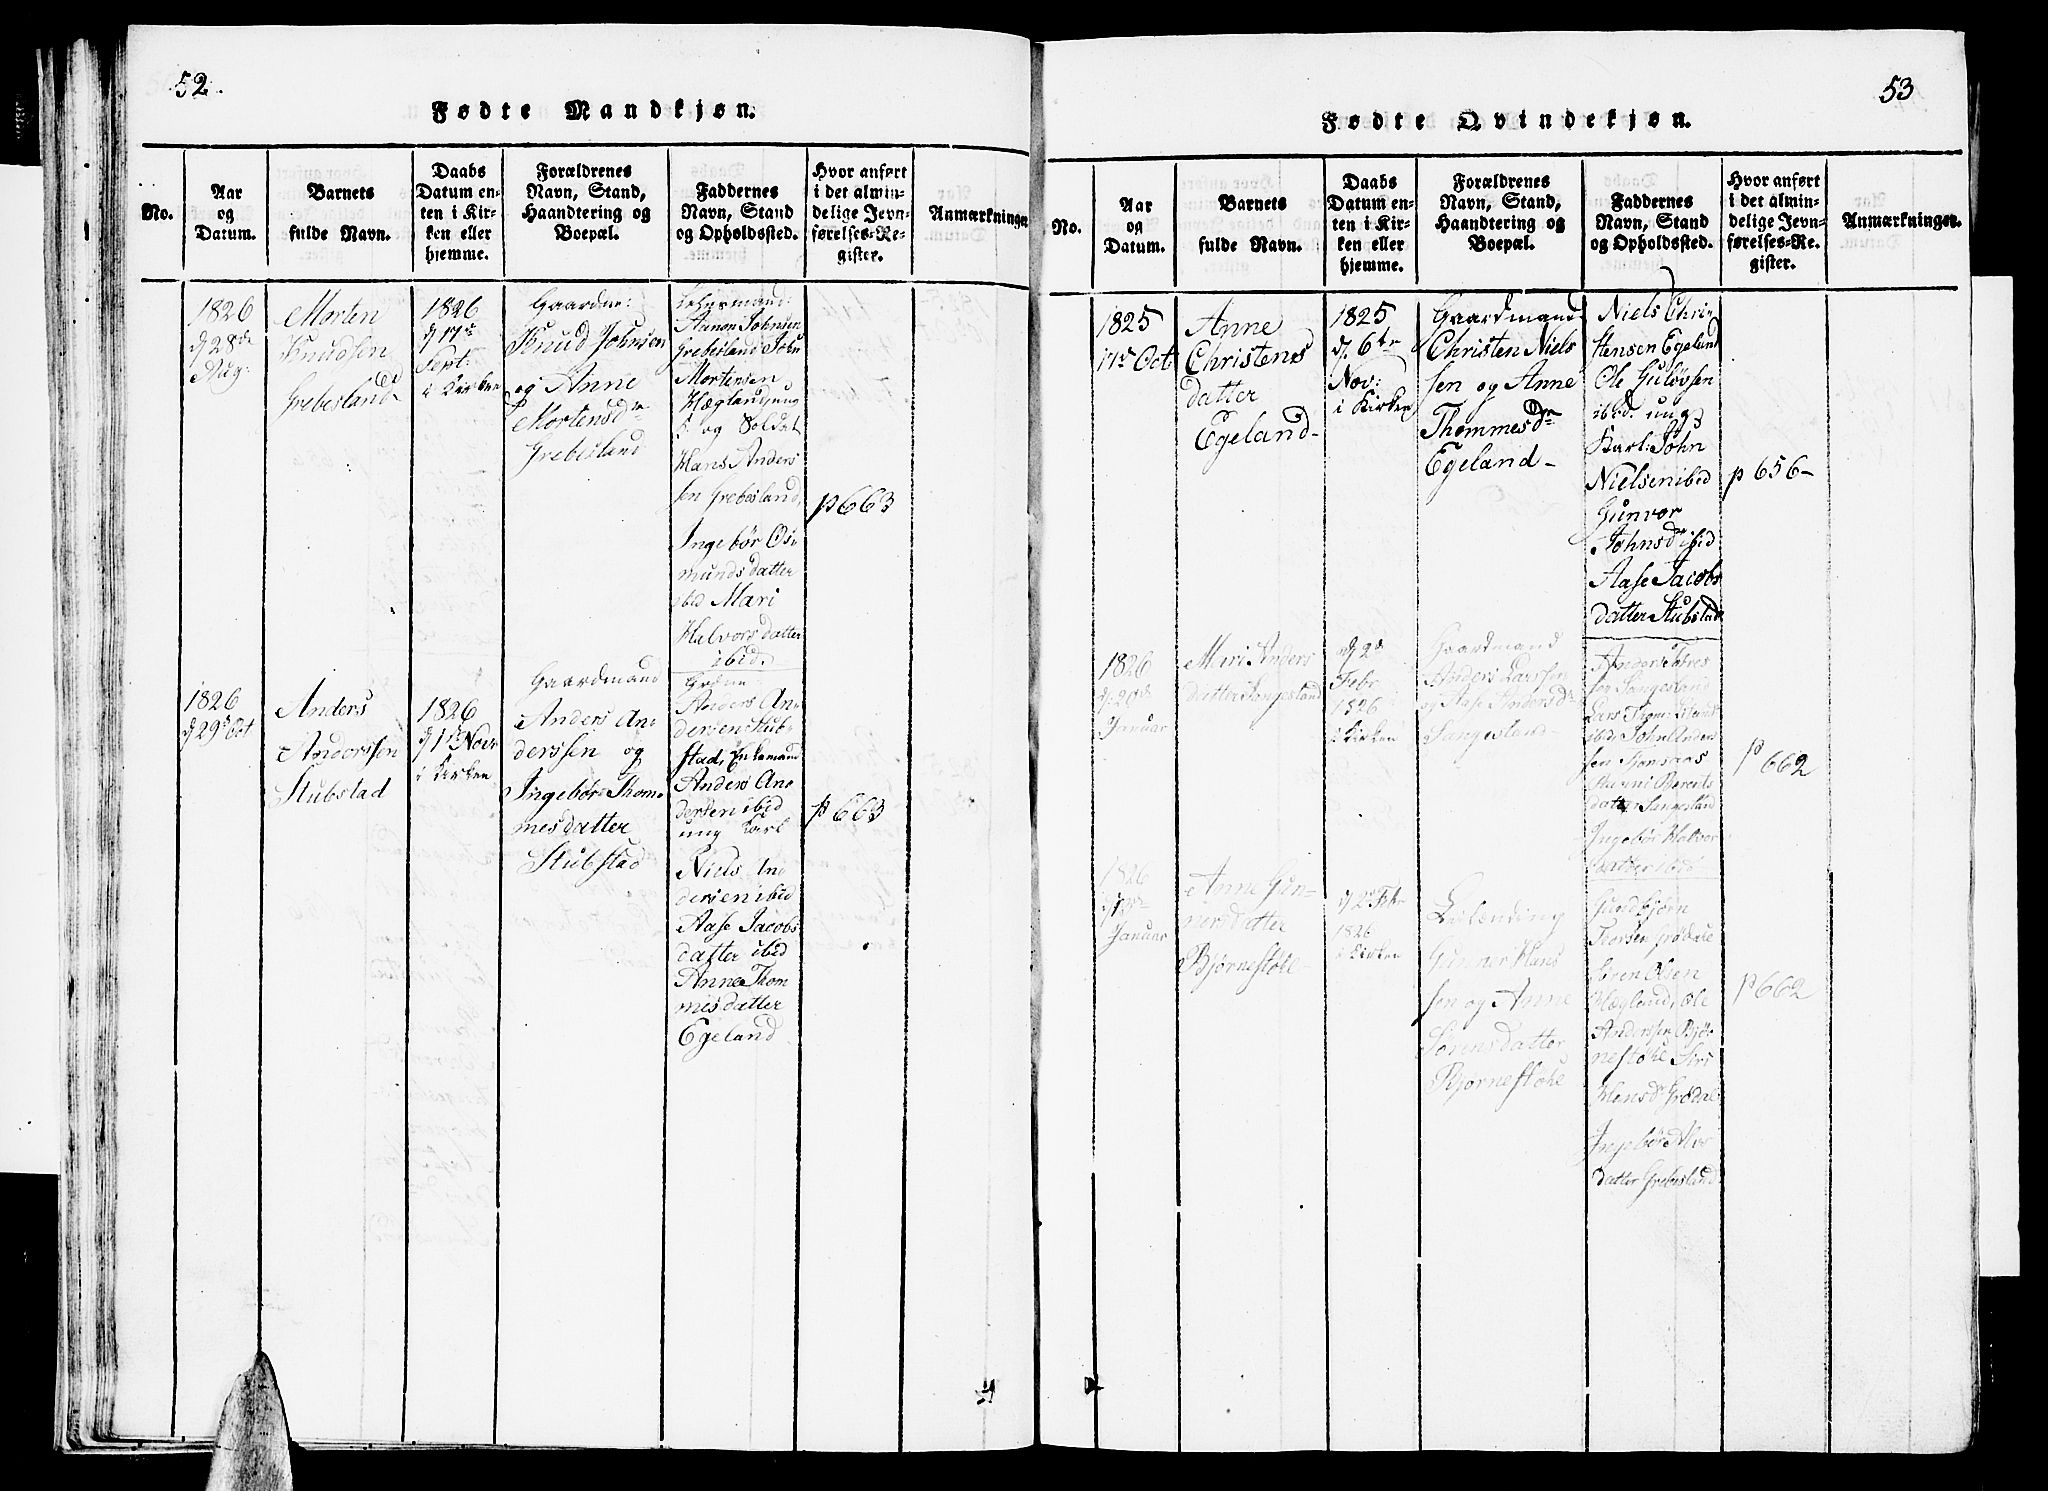 52.
Fødte Mandkjøn.
No.
Aar
og
Datum.
Barnets
fulde Navn.
Daabs
Datum en-
ten i Kir-
ken eller
hjemme.
Forældrenes
Navn, Stand,
Haandtering og
Boepæl.
Faddernes
Navn, Stand
og Opholdssted.
Hvor anført
i det almin-
delige Jevn-
førelses-Re-
gister.
Anmærkninger
1826
d 28de
Aug:
Morten
Knudsen
Grebesland
1826
d 17de
Sept:
i Kirken
Gaardm:
Knud Johnsen
og Anne
Mortensdr
Grebesland
Aanon Johnsen
Grebesland John
Mortensen
Hægland ung
K. og Soldat
Hans Anders
sen Grebesland,
Ingebør Os-
munds datter
ibid Mari
Halvors datter
ibid.
p 663
1826
d 29d Oct
Anders
Anderssen
Stubstad
1826
d 1ste Novr
i Kirken
Gaardmand
Anders An-
derssen og
Ingebør Thom-
mesdatter
Stubstad
Anders An-
dersen Stub-
stad, Enkemand
Anders An-
dersen ibid
ung Karl
Niels An-
dersen ibid
Aase Jacobs
datter ibid
Anne Thom
mesdatter
Egeland
p 663
53
Fødte Qvindekjøn.
No.
Aar
og
Datum.
Barnets
fulde Navn.
Daabs
Datum en-
ten i Kir-
ken eller
hjemme.
Forældrenes
Navn, Stand,
Haandtering og
Boepæl.
Faddernes
Navn, Stand
og Opholdssted.
Hvor anført
i det almin-
delige Jevn-
førelses-Re-
gister.
Anmærkninger.
1825
17de Oct
Anne
Christens
datter
Egeland-
1825
d. 6te
Nov:
i Kirken
Gaardmand
Christen Niels
sen og Anne
Thommesdr
Egeland-
Niels Chri-
stensen Egeland
Ole Guløvsen
ibid. ung
Karl: John
Nielsen ibid
Gunvor
Johnsdr ibid
Aase Jacobs
datter Stubstad
p 656-
1826
d. 20de
Januar
Mari Anders
datter Sangesland
d 2d
Febr
1826
i Kirken
Gaardmand
Anders Larssen
og Aase Andersdr
Sangesland-
Anders Tores
sen Sangesland
Lars Thom:
ibid. John Anders
sen Stonsaas
Berents
datter Sangesland
Ingebør Halvor
datter ibid
p 662
1826
d 13de
Januar
Anne Gun-
nersdatter
Bjørnestøle-
d 2d Febr
1826
i Kirken
Gunner Hans
sen og Anne
Sørensdatter
Bjørnestøle
Gundbjørn
Torsen Grødale
Søren Olsen
Hægland, Ole
Anderssen Bjør-
nestøle Siri
Hansdr Grødal
Ingebør Alvs
datter Grebesland
p 662